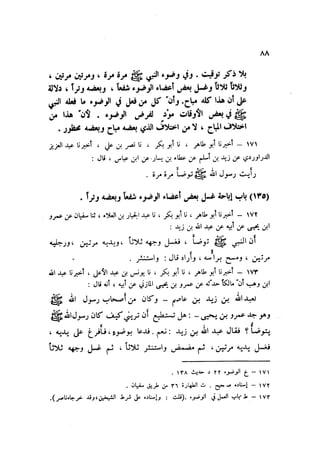 ٨٨
بلا ذكر توقيت . وفي وضوء النبي ﷺ مرة مرة ، ومرتين مرتين ،
وثلاثاً ثلاثاً وغسل بعض أعضاء الوضوء شفعاً ، وبعضه وتراً ، دلالة
على أن هذا كله مباح. وأن كل من فعل في الوضوء ما فعله النبي
ﷺ في بعض الأوقات مؤد لفرض الوضوء . لأن هذا من
اختلاف المباح ، لا من اختلاف الذي بعضه مباح وبعضه محظور .
١٧١ – أخبرنا أبو طاهر ، نا أبو بكر ، نا نصر بن علي ، أخبرنا عبد العزيز
الدراوردي عن زيد بن أسلم عن عطاء بن يسار عن ابن عباس ، قال :
رأيت رسول الله ﷺ توضأ مرة مرة .
(١٣٥) باب إباحة غسل بعض أعضاء الوضوء شفعاً وبعضه وتراً .
١٧٢ – أخبرنا أبو طاهر ، نا أبو بكر ، نا عبد الجبار بن العلاء ، ثنا سفيان عن عمرو
ابن يحيى عن أبيه عن عبد الله بن زيد :
أن النبي ﷺ توضأ ، فغسل وجهه ثلاثاً ، ويديه مرتين ، ورجليه
مرتين ، ومسح برأسه ، وأراه قال : واستنثر .
١٧٣ – أخبرنا أبو طاهر ، نا أبو بكر ، نا يونس بن عبد الأعلى ، أخبرنا عبد الله
ابن وهب أن مالكاً حدثه عن عمرو بن يحيى المازني عن أبيه ، أنه قال :
لعبد الله بن زيد بن عاصم – وكان من أصحاب رسول الله ﷺ
وهو جد عمرو بن يحيى – : هل تستطيع أن تريني كيف كان رسول الله ﷺ
يتوضأ ؟ فقال عبد الله بن زيد : نعم . فدعا بوضوء ، فأفرغ على يديه ،
فغسل يديه مرتين ، ثم مضمض واستنثر ثلاثاً ، ثم غسل وجهه ثلاثاً
١٧١ – خ الوضوء ٢٢ د حديث ١٣٨ .
١٧٢ – إسناده صحيح . ت الطهارة ٣٦ من طريق سفيان .
١٧٣ – ط كتاب العمل في الوضوء . (قلت : وإسناده على شرط الشيخين وقد خرجاه ناصر).